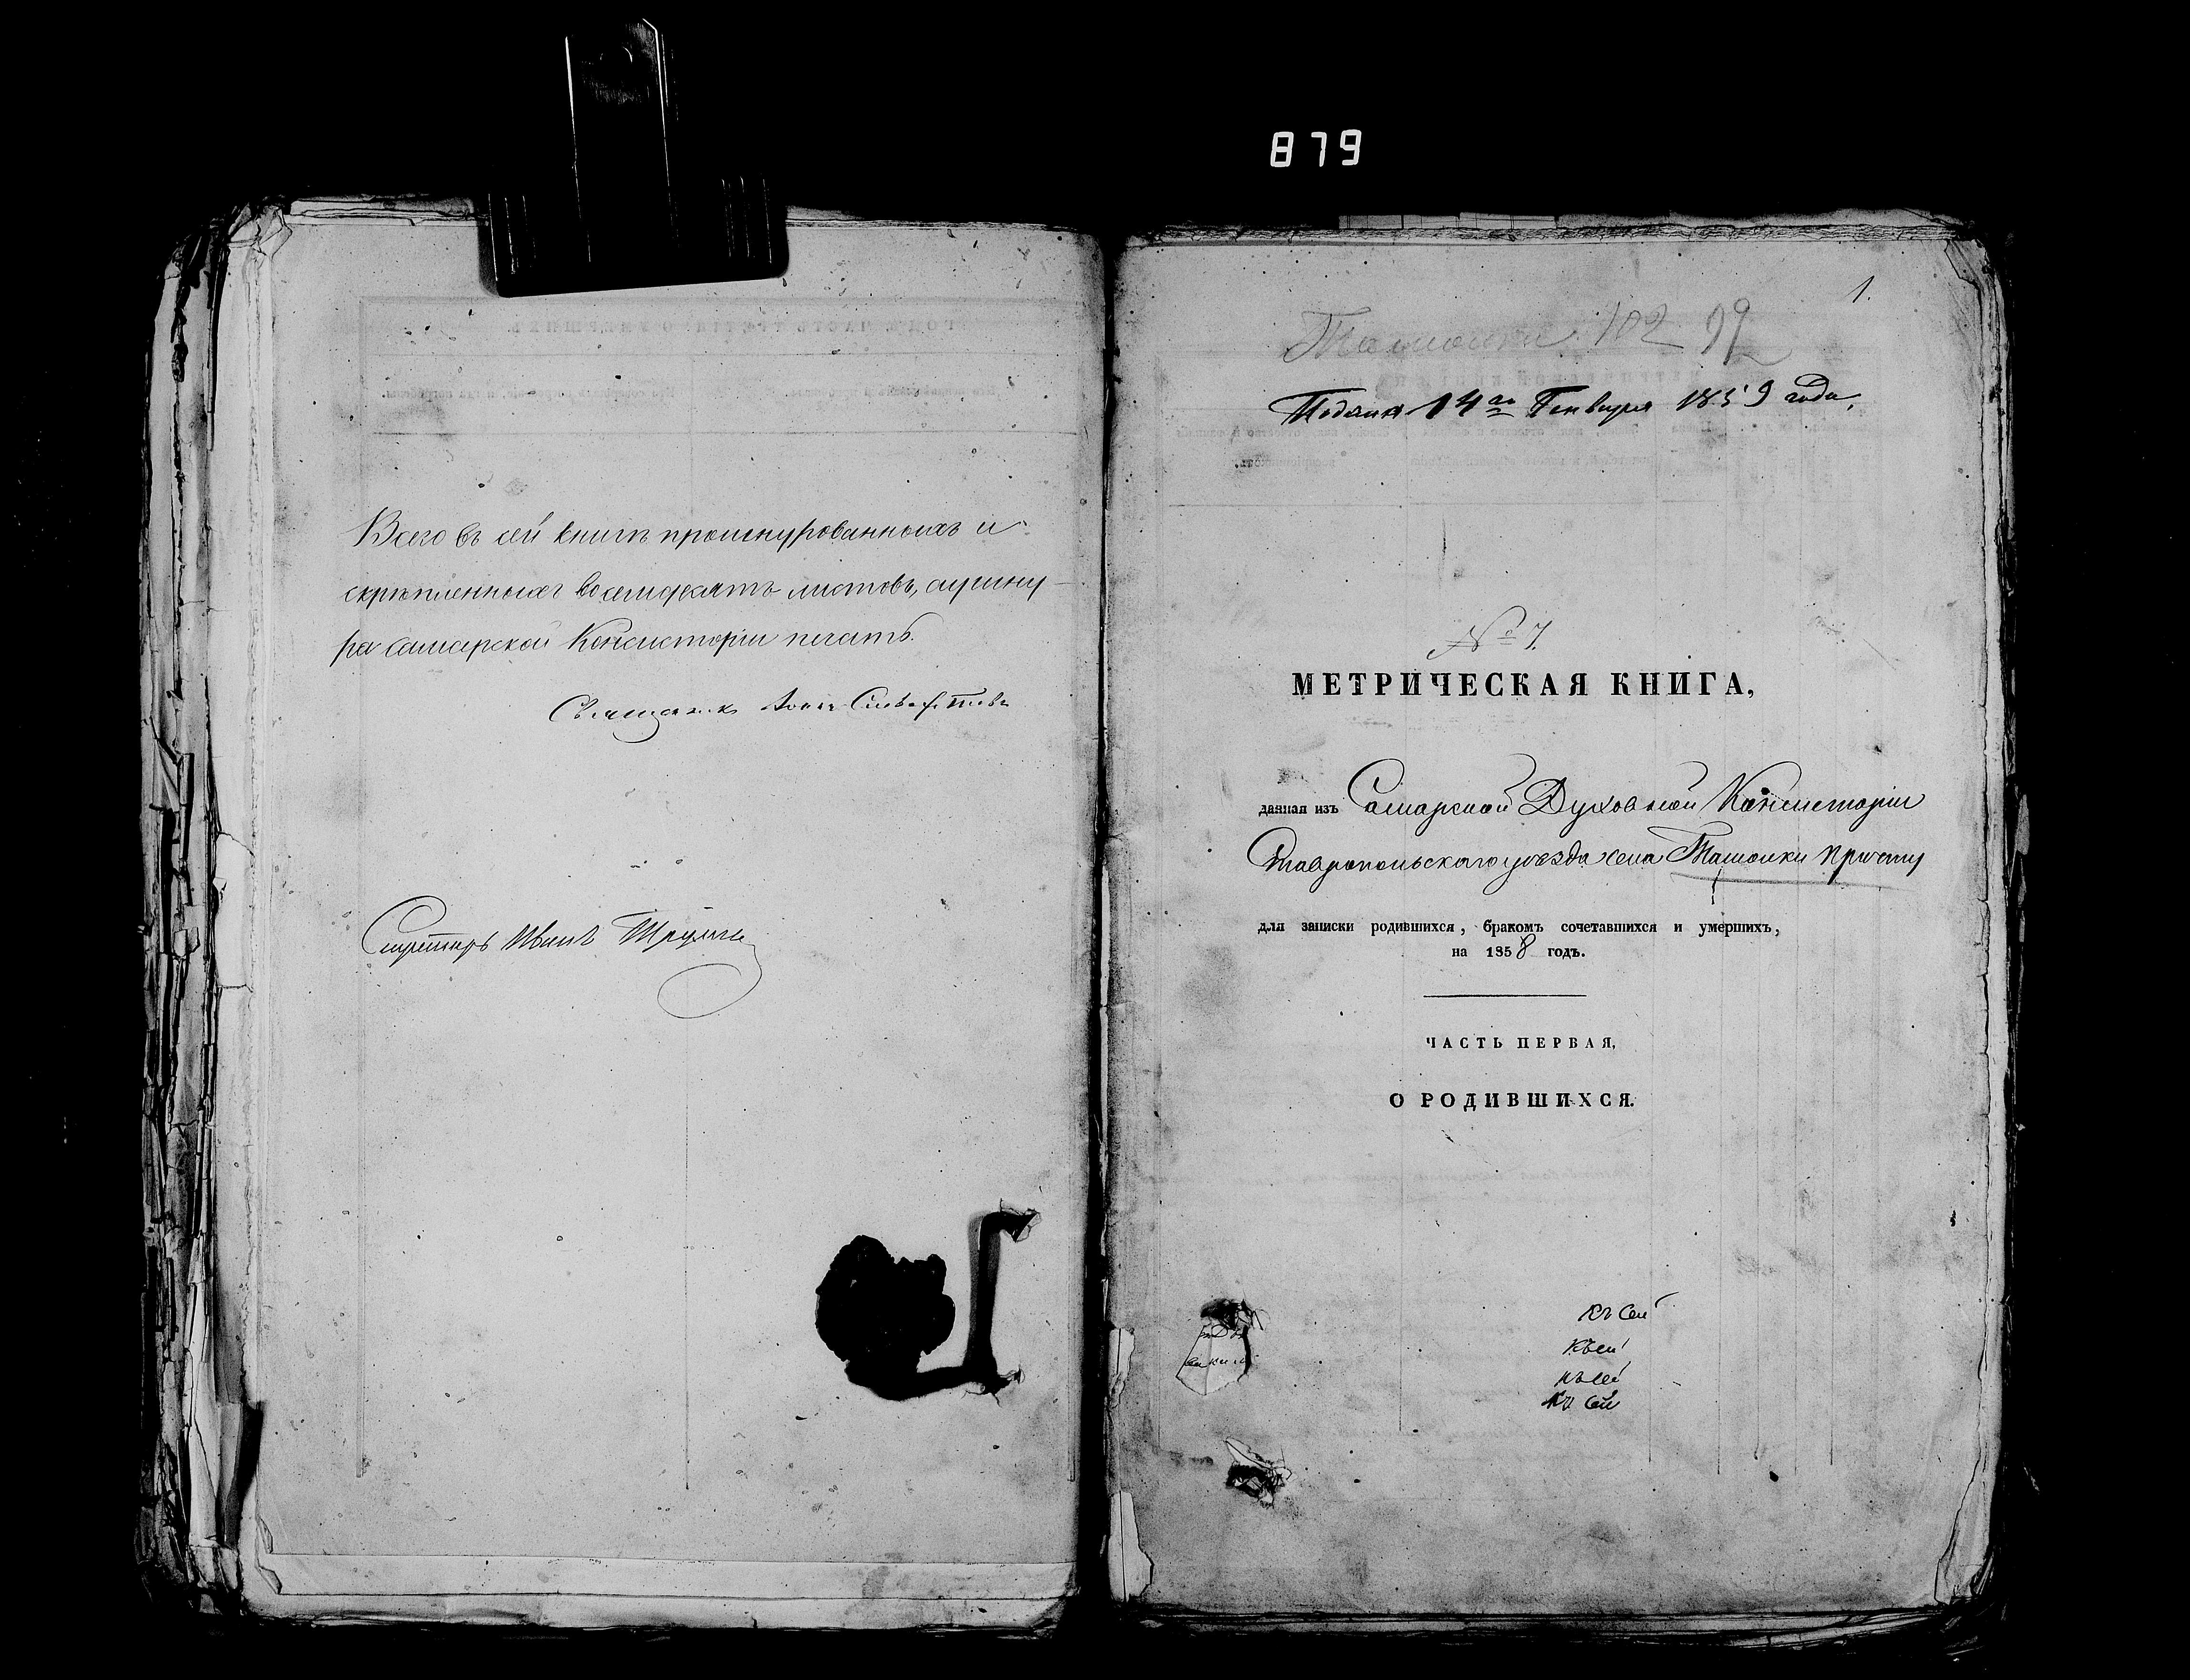 879
Всего въ сей книгѣ прошнурованныхъ и
скрѣпленныхъ восемдесятъ листовъ, а у шну-
ра Самарской Консисторіи печать.
Священникъ Іоаннъ
Секретарь Иванъ
1.
Ташолки 102 99
Подана 14го Генваря 1859 года,
№ 7.
МЕТРИЧЕСКАЯ КНИГА,
данная изъ Самарской Духовной Консисторіи
Ставропольскаго уѣзда села Ташолки причту
для записки родившихся, бракомъ сочетавшихся и умершихъ,
на 1858 годъ.
ЧАСТЬ ПЕРВАЯ,
О РОДИВШИХСЯ.
Къ сей
Къ сей
Къ сей
Къ сей